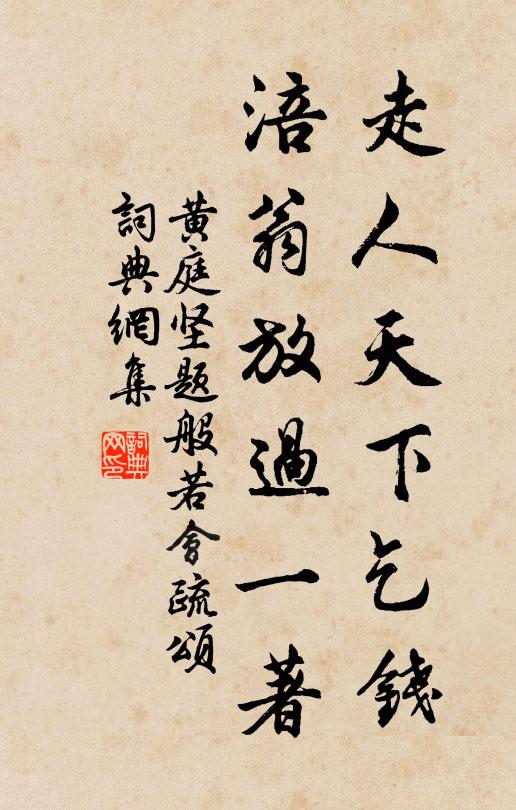 走人天下乞錢
涪翁放過一著
黃庭坚题般若會疏頌
詞典網集
詞典网印